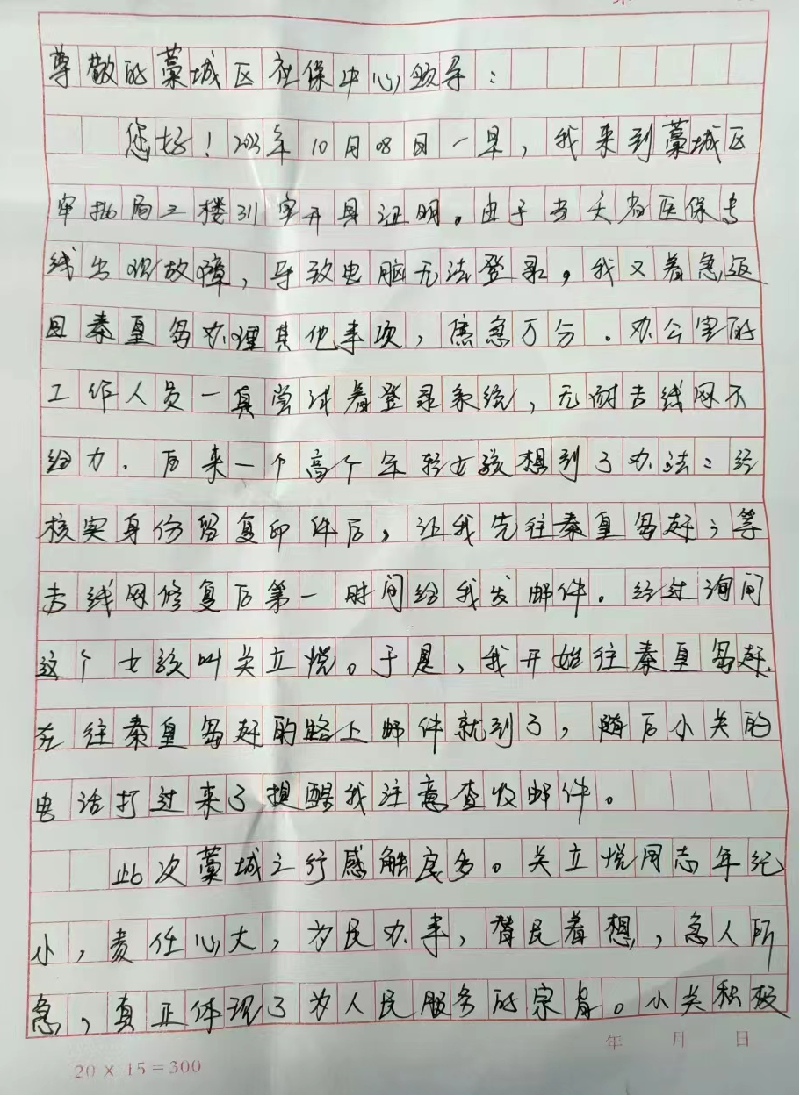 尊敬的藁城区社保中心领导：
您好！2023年10月08日一早，我来到藁城区
审批局二楼311室开具证明。由于当天省医保专
线出现故障，导致电脑无法登录，我又着急返
回秦皇岛办理其他事项，焦急万分．办公室的
工作人员一真尝试着登录系统，无耐专线网不
给力．后来一个高个年轻女孩想到了办法：经
核实身份留复印件后，让我先往秦皇岛赶；等
专线网修复后第一时间给我发邮件．经过询问
这个女孩叫关立悦。于是，我开始往秦皇岛赶．
在往秦皇岛赶的路上邮件就到了，随后小关的
电话打过来了提醒我注意查收邮件。
此次藁城之行感触良多。关立悦同志年纪
小，责任心大，为民办事，替民着想，急人所
急，真正体现了为人民服务的宗旨。小关积极
年 月 日
20 × 15 = 300